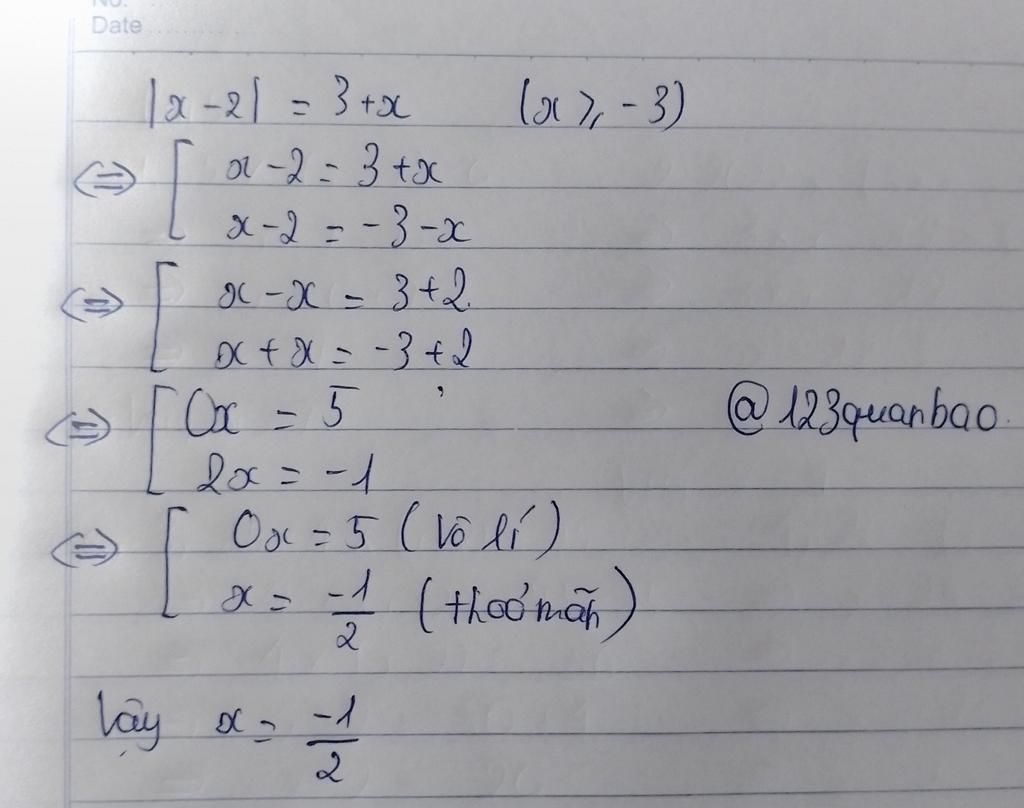 No.
Date
|x - 2| = 3 + x (x ⩾ -3)
⇔ [ x - 2 = 3 + x
x - 2 = -3 - x
⇔ [ x - x = 3 + 2
x + x = -3 + 2
⇔ [ 0x = 5
2x = -1
@123quanbao
⇔ [ 0x = 5 (vô lí)
x = -1/2 (thoả mãn)
Vậy x = -1/2